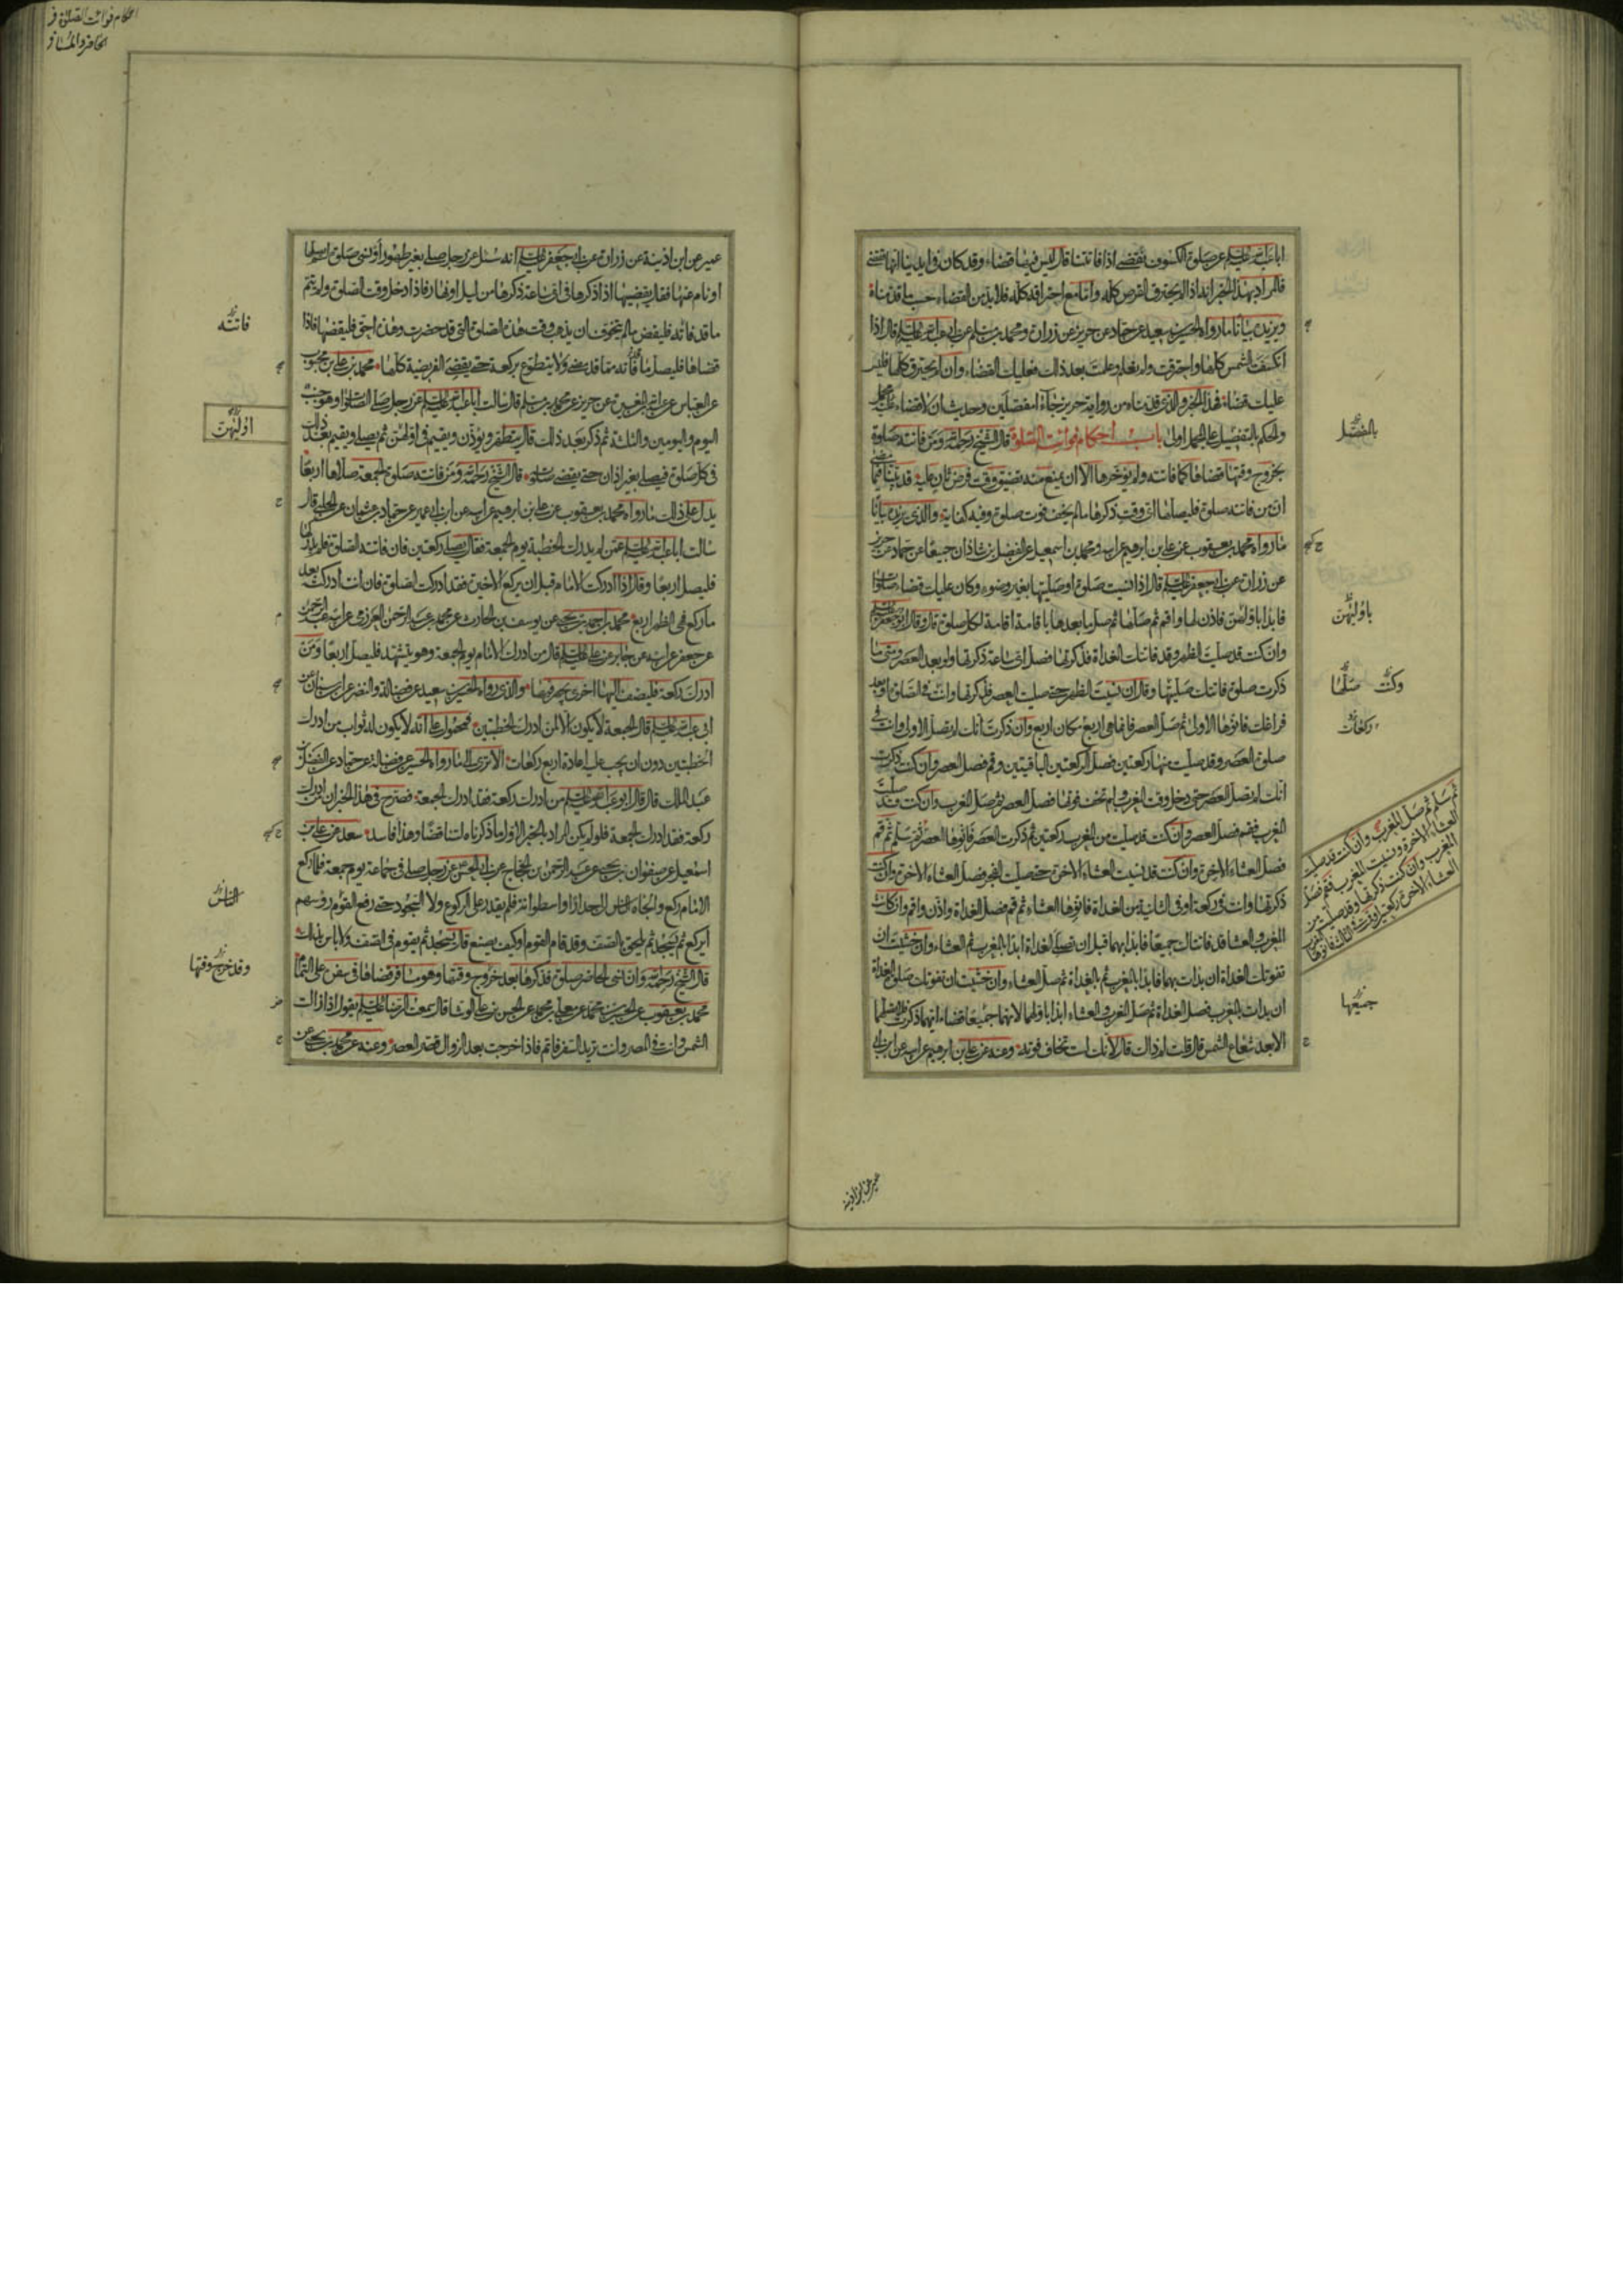 ابا عبد الله عليه السلم عن صلوة الكسوف نقضى اذا فاتتنا قال ليس فيها قضاء وقد كان فى ايدينا انها تقضى
فالمراد بهذا الخبر انه اذا لم يحترق القرص كله واما مع احتراقه كله فلا بد من القضاء حسب ما قدمناه
ويزيده بيانا ما رواه الحسين بن سعيد عن حماد عن حريز عن زرارة ومحمد بن مسلم عن ابى عبد الله عليه السلم قال اذا
انكسفت الشمس كلها واحترقت ولم تعلم وعلمت بعد ذلك فعليك القضاء وان لم يحترق كلها فليس
عليك قضاء فهذا الخبر والذى قدمناه من رواية حريز جاءا مفصلين وحديث ان لا قضاء عليه مجمل
والحكم بالتفصيل على المجمل اولى باب احكام فوائت الصلوة قال الشيخ رحمه الله ومن فاتته صلوة
بخروج وقتها قضاها كما فاتته ولم يؤخرها الا ان يمنع منه تضيق وقت فرض ثان عليه قد بينا فيما مضى
ان من فاتته صلوة فليصلها اى وقت ذكرها ما لم يخف فوت صلوة وفيه كفاية والذى يزيده بيانا
ما رواه محمد بن يعقوب عن على بن ابرهيم عن ابيه ومحمد بن اسمعيل عن الفضل بن شاذان جميعا عن حماد عن حريز
عن زرارة عن ابى جعفر عليه السلم قال اذا نسيت صلوة او صليتها بغير وضوء وكان عليك قضاء صلوات
فابدا باولهن فاذن لها واقم ثم صلها ثم صل ما بعدها باقامة اقامة لكل صلوة قال وقال ابو جعفر عليه السلم
وان كنت قد صليت الظهر وقد فاتتك الغداة فذكرتها فصل اى ساعة ذكرتها ولو بعد العصر ومتى ما
ذكرت صلوة فاتتك صليتها وقال ان نسيت الظهر حتى صليت العصر فذكرتها وانت فى الصلوة او بعد
فراغك فانوها الاولى ثم صل العصر فانما هى اربع مكان اربع وان ذكرت انك لم تصل الاولى وانت فى
صلوة العصر وقد صليت منها ركعتين فصل الركعتين الباقيتين وقم فصل العصر وان كنت ذكرت
انك لم تصل العصر حتى دخل وقت المغرب ولم تخف فوتها فصل العصر ثم صل المغرب وان كنت قد صليت
المغرب فقم فصل العصر وان كنت قد صليت من المغرب ركعتين ثم ذكرت العصر فانوها العصر ثم سلم ثم قم
فصل العشاء الاخرة وان كنت قد نسيت العشاء الاخرة حتى صليت الفجر فصل العشاء الاخرة وان كنت
ذكرتها وانت فى ركعة او فى الثانية من الغداة فانوها العشاء ثم قم فصل الغداة واذن واقم وان كانت
المغرب والعشا قد فاتتاك جميعا فابدا بهما قبل ان تصلى الغداة ابدا بالمغرب ثم العشاء وان خشيت ان
تفوتك الغداة ان بدات بهما فابدا بالمغرب ثم بالغداة ثم صل العشاء وان خشيت ان تفوتك صلوة الغداة
ان بدات بالمغرب فصل الغداة ثم صل المغرب والعشاء ابدا باولهما لانهما جميعا قضاء ايهما ذكرت فلا تصلهما
الا بعد شعاع الشمس قال قلت لم ذاك قال لانك لست تخاف فوته وعنه عن على بن ابرهيم عن ابيه عن ابن ابى
بالمفصل
باوليهن
وكنت صلها
ركعات
ثم سلم ثم صل المغرب وان كنت قد صليت
العشاء الاخرة ونسيت المغرب فقم فصل
المغرب وان كنت ذكرتها وقد صليت من
العشاء الاخرة ركعتين او قمت فى الثالثة فانوها
جميعها
عمير عن ابن اذينه
احكام فوائت الصلوة فى
الحاضر والمسافر
عمير عن ابن اذينة عن زرارة عن ابى جعفر عليه السلم انه سئل عن رجل صلى بغير طهور او نسى صلوة لم يصلها
او نام عنها فقال يقضيها اذا ذكرها فى اى ساعة ذكرها من ليل او نهار فاذا دخل وقت الصلوة ولم يتم
ما قد فاته فليقض ما لم يتخوف ان يذهب وقت هذه الصلوة التى قد حضرت وهذه احق فليقضها فاذا
قضاها فليصل ما فاته مما قد مضى ولا يتطوع بركعة حتى يقضى الفريضة كلها محمد بن على بن محبوب
عن العباس عن عبد الله بن المغيرة عن حريز عن محمد بن مسلم قال سالت ابا عبد الله عليه السلم عن رجل صلى الصلوات وهو جنب
اليوم واليومين والثلثة ثم ذكر بعد ذلك قال يتطهر ويؤذن ويقيم فى اولهن ثم يصلى ويقيم بعد ذلك
فى كل صلوة فيصلى بغير اذان حتى يقضى صلوته قال الشيخ رحمه الله ومن فاتته صلوة الجمعة صلاها اربعا
يدل على ذلك ما رواه محمد بن يعقوب عن على بن ابرهيم عن ابيه عن ابن ابى عمير عن حماد بن عثمان عن الحلبى قال
سالت ابا عبد الله عليه السلم عمن لم يدرك الخطبة يوم الجمعة فقال يصلى ركعتين فان فاتته الصلوة فلم يدركها
فليصل اربعا وقال اذا ادركت الامام قبل ان يركع الاخيرة فقد ادركت الصلوة فان انت ادركته بعد
ما ركع فهى الظهر اربع محمد بن احمد بن يحيى عن يوسف بن الحارث عن محمد بن عبد الرحمن العرزمى عن ابيه عبد الرحمن
عن جعفر عن ابيه عن جابر عن على عليه السلم قال من ادرك الامام يوم الجمعة وهو يتشهد فليصل اربعا ومن
ادرك ركعة فليضف اليها اخرى يجهر فيها والذى رواه الحسين بن سعيد عن فضالة والنضر عن ابن سنان عن
ابى عبد الله عليه السلم قال الجمعة لا يكون الا لمن ادرك الخطبتين فمحمول على انه لا يكون له ثواب من ادرك
الخطبتين دون ان يجب عليه اعادة اربع ركعات الا ترى الى ما رواه الحسين عن فضالة عن حماد عن الفضل بن
عبد الملك قال قال ابو عبد الله عليه السلم من ادرك ركعة فقد ادرك الجمعة فصرح فى هذا الخبر ان من ادرك
ركعة فقد ادرك الجمعة فلو لم يكن المراد بالخبر الاول ما ذكرناه لتناقضا وهذا فاسد سعد عن على بن
اسمعيل عن صفوان بن يحيى عن عبد الرحمن بن الحجاج عن ابى الحسن عن رجل صلى فى جماعة يوم جمعة فلما ركع
الامام ركع والجاه الناس الى جدار او اسطوانة فلم يقدر على الركوع ولا السجود حتى رفع القوم رؤسهم
ايركع ثم يسجد ثم يلحق بالصف وقد قام القوم او كيف يصنع قال يسجد ثم يقوم فى الصف ولا باس بذلك
قال الشيخ رحمه الله وان نسى الحاضر صلوة فذكرها بعد خروج وقتها وهو مسافر قضاها فى سفره على التمام
محمد بن يعقوب عن الحسين بن محمد عن معلى بن محمد عن الحسن بن على الوشا قال سمعت الرضا عليه السلم يقول اذا زالت
الشمس وانت فى المصر وانت تريد السفر فاتم فاذا خرجت بعد الزوال قصر العصر وعنه عن محمد بن يحيى عن
فاتته
اوليهن
الناس
وقد خرج وقتها